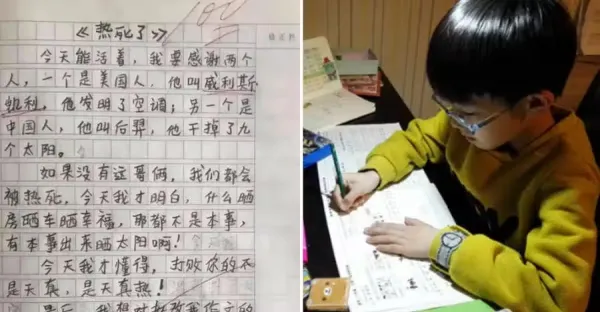 《热死了》
100
今天能活着，我要感谢两个
人，一个是美国人，他叫威利斯
凯利，他发明了空调；另一个是
中国人，他叫后羿，他干掉了九
个太阳。
如果没有这哥俩，我们都会
被热死，今天我才明白，什么晒
房晒车晒幸福，那都不是本事，
有本事出来晒太阳啊！
今天我才懂得，打败你的不
是天真，是天真热！
最后，我想对批改我作文的